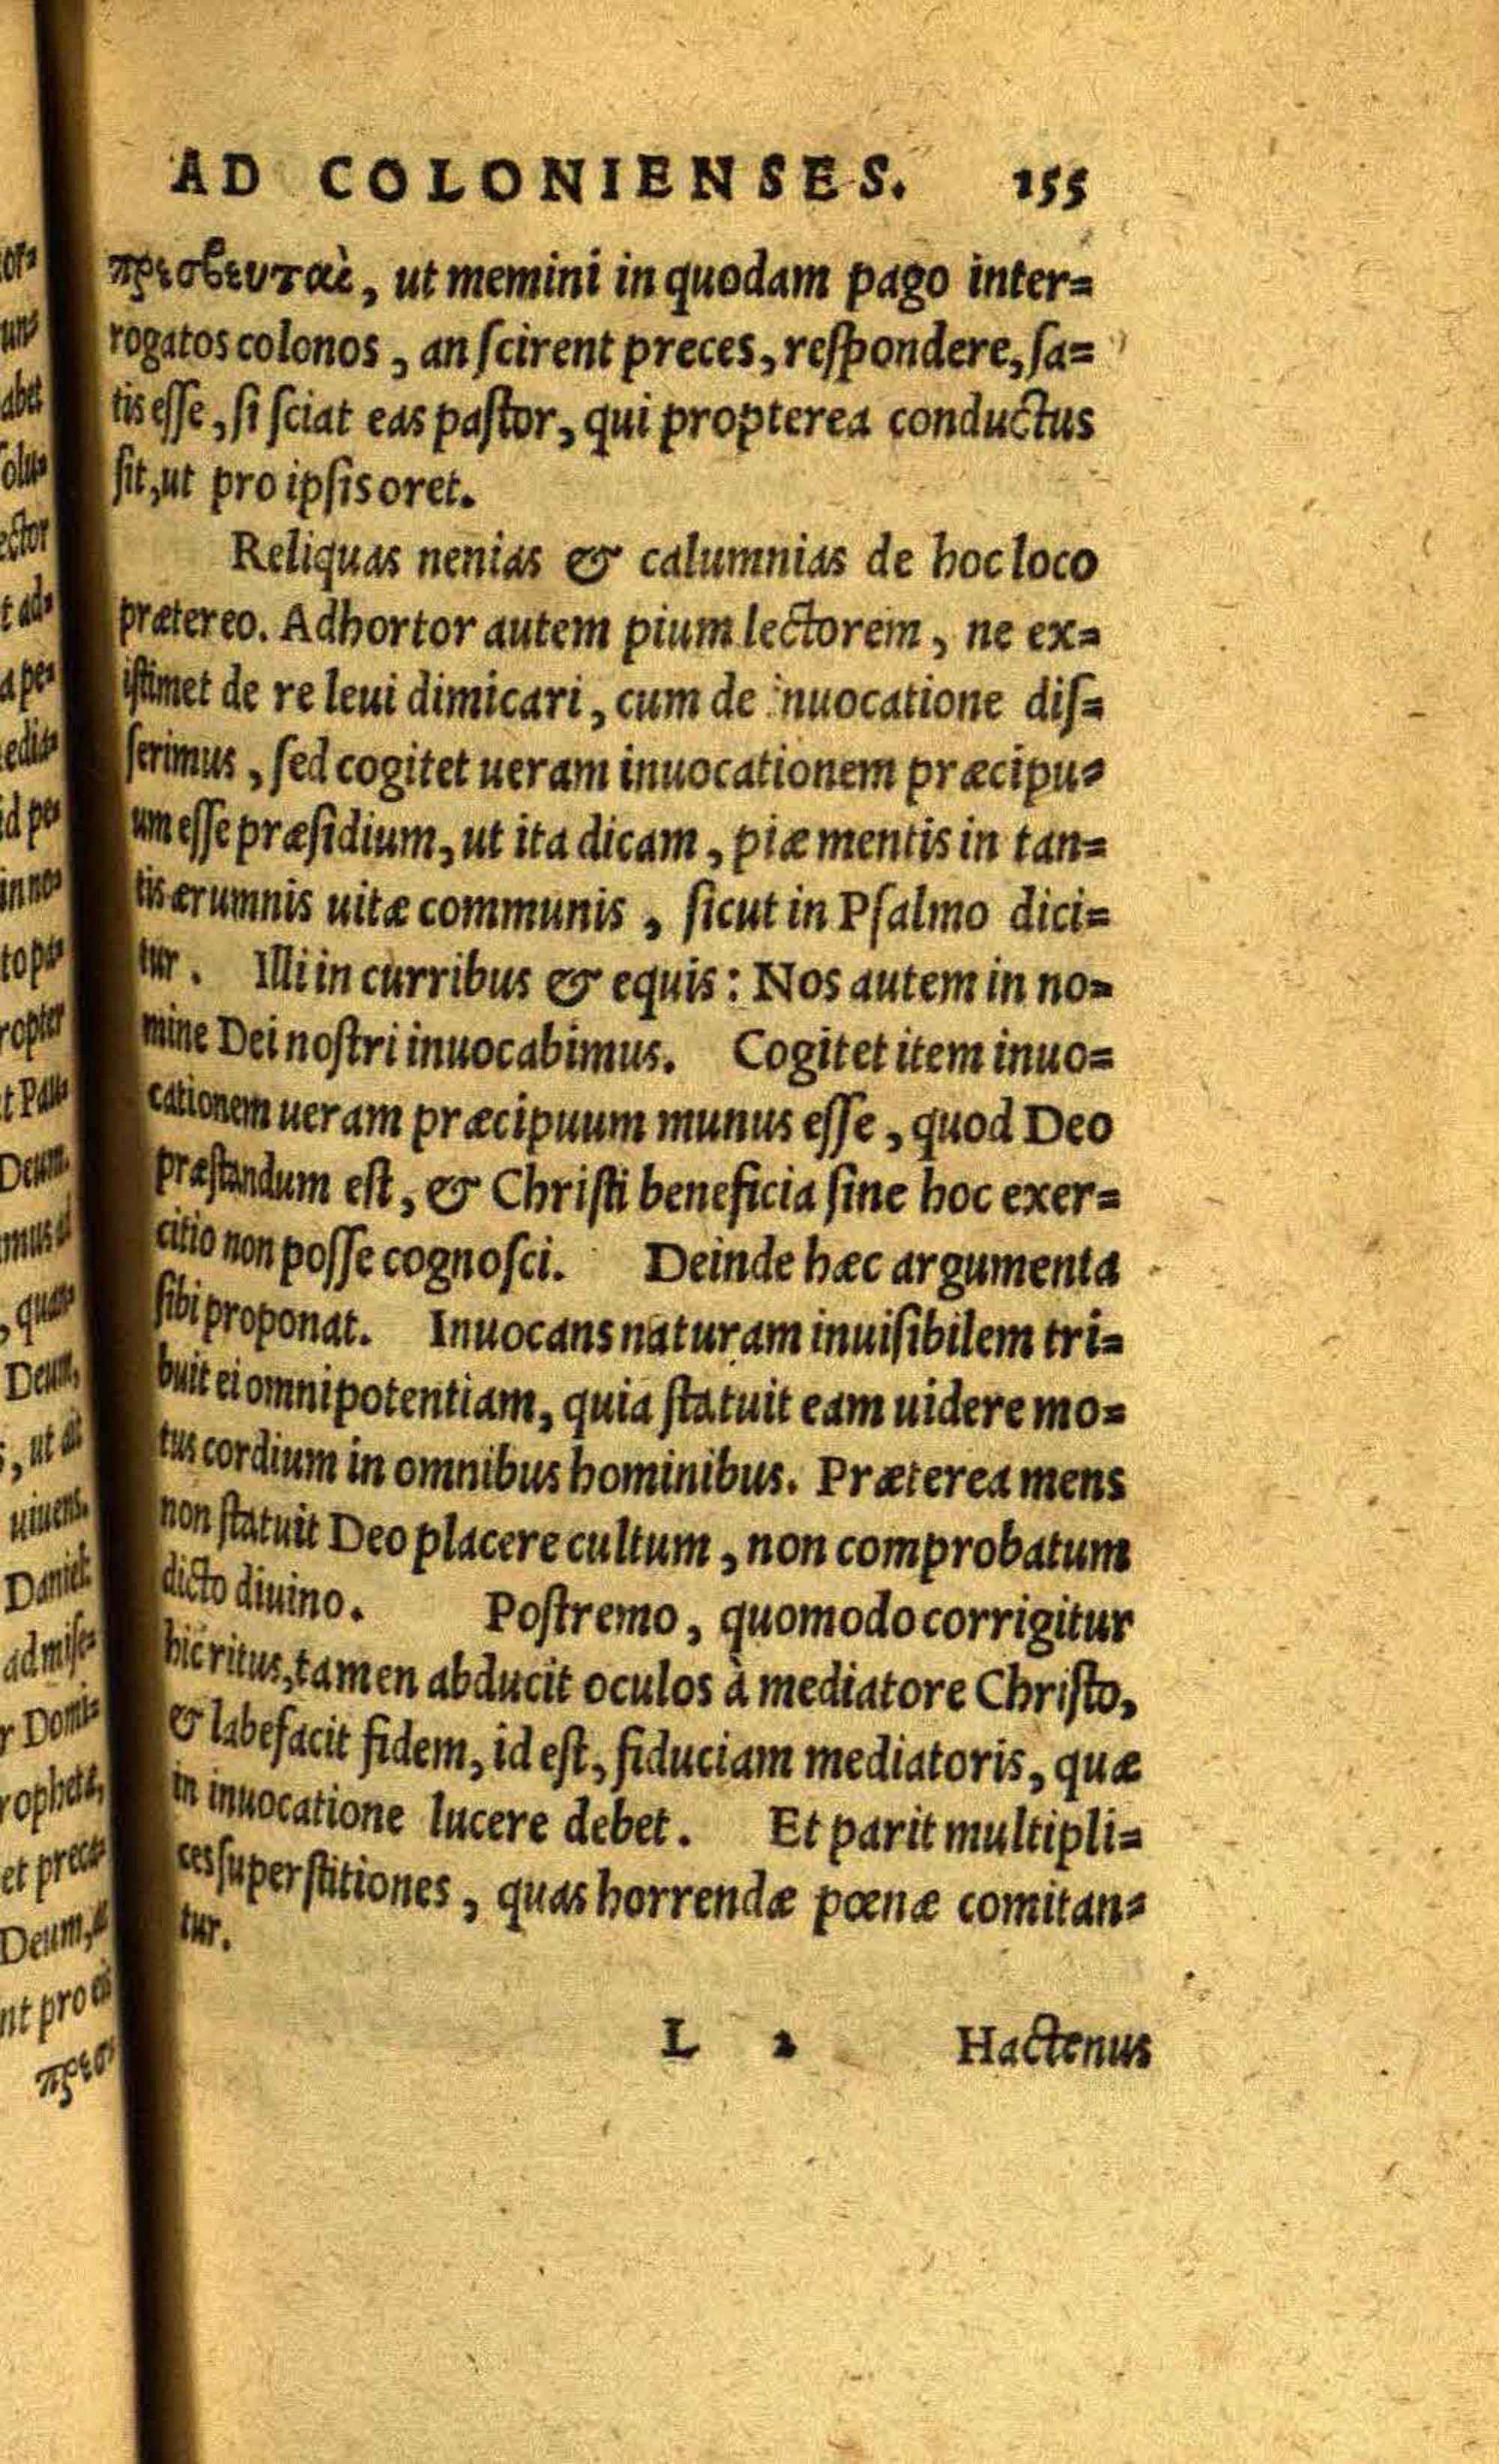 AD COLONIENSES. 155
πρεσβευταὶ, ut memini in quodam pago inter=
rogatos colonos, an ſcirent preces, reſpondere, ſa=
tis eſſe, ſi ſciat eas paſtor, qui propterea conductus
ſit, ut pro ipſis oret.
Reliquas nenias & calumnias de hoc loco
prætereo. Adhortor autem pium lectorem, ne ex=
iſtimet de re leui dimicari, cum de inuocatione diſ=
ſerimus, ſed cogitet ueram inuocationem præcipu=
um eſſe præſidium, ut ita dicam, piæ mentis in tan=
tis ærumnis uitæ communis, ſicut in Pſalmo dici=
tur. Illi in curribus & equis: Nos autem in no=
mine Dei noſtri inuocabimus. Cogitet item inuo=
cationem ueram præcipuum munus eſſe, quod Deo
præſtandum eſt, & Chriſti beneficia ſine hoc exer=
citio non poſſe cognoſci. Deinde hæc argumenta
ſibi proponat. Inuocans naturam inuiſibilem tri=
buit ei omnipotentiam, quia ſtatuit eam uidere mo=
tus cordium in omnibus hominibus. Præterea mens
non ſtatuit Deo placere cultum, non comprobatum
dicto diuino. Poſtremo, quomodo corrigitur
hic ritus, tamen abducit oculos à mediatore Chriſto,
& labefacit fidem, id eſt, fiduciam mediatoris, quæ
in inuocatione lucere debet. Et parit multipli=
ces ſuperſtitiones, quas horrendæ pœnæ comitan=
tur.
L 2 Hactenus